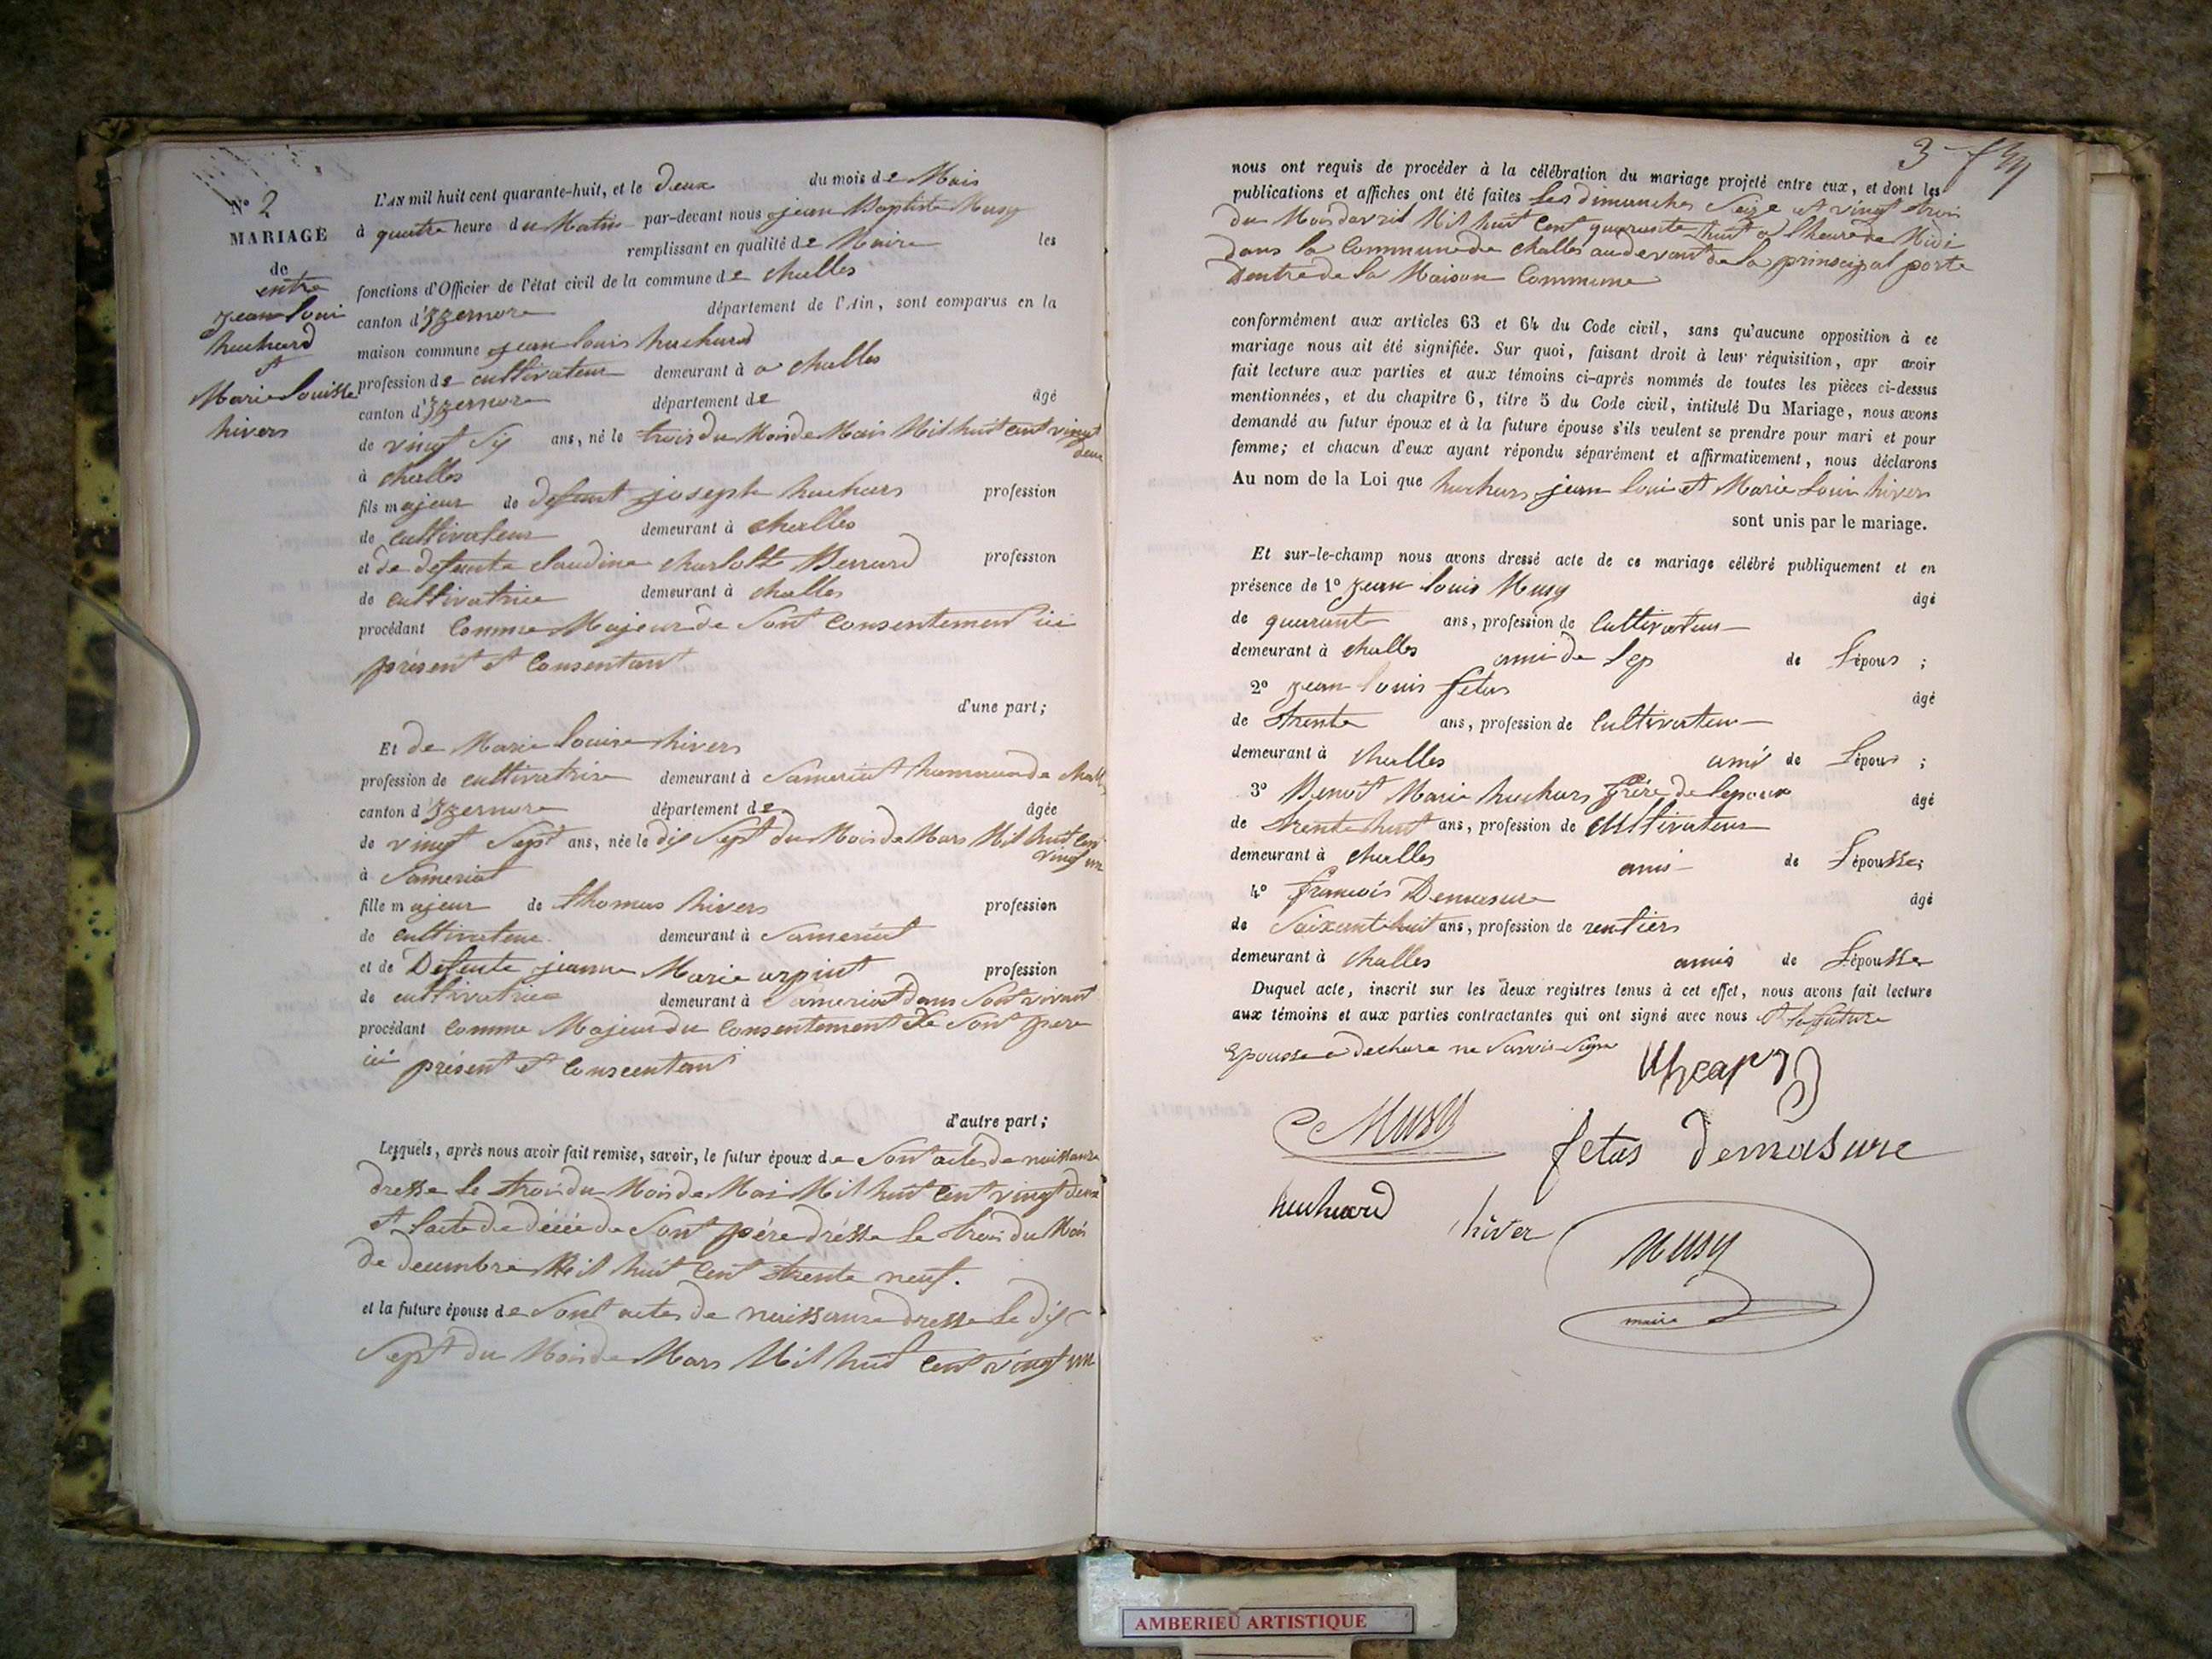 N° 2
MARIAGE
de
entre
jean loui
huchard
et
Marie Louisse
hivers
L'AN mil huit cent quarante-huit, et le deux du mois de Mais
à quatre heure du Matin par-devant nous jean Baptiste Musy
remplissant en qualité de Maire les
fonctions d'Officier de l'état civil de la commune de challes
canton d'Izernore département de l'Ain, sont comparus en la
maison commune jean louis huchard
profession de cultivateur demeurant à a challes
canton d'Izernore département de âgé
de vingt six ans, né le trois du Mois de Mais Mil huit cent vingt
deux
à challes
fils majeur de defunt joseph huchars profession
de cultivateur demeurant à challes
et de defunte claudine charlott Berrard profession
de cultivatrice demeurant à challes
procédant comme Majeur de Sont consentement ici
présent et consentant
d'une part;
Et de Marie louise hivers
profession de cultivatrise demeurant à Sameriat
canton d'Izernore département de âgée
de vingt Sept ans, née le dix Sept du Mois de Mars Mil huit cent
vingt un
à Sameriat
fille majeur de thomas hivers profession
de cultivateur demeurant à Sameriat
et de Defunte jeanne Marie arpint profession
de cultivatrice demeurant à Sameriat dans Sont vivant
procédant comme Majeur du consentement de Sont père
ici présent et conscentant
d'autre part;
Lesquels, après nous avoir fait remise, savoir, le futur époux de Sont actes de naissance
dresse le trois du Mois de Mai Mil huit cent vingt deux
et lacte de décée de Sont père drésse le trois du Mois
de decembre Mil huit cent trente neuf.
et la future épouse de Sont actes de naissance dresse le dix
Sept du Mois de Mars Mil huit cent vingt un
3
nous ont requis de procéder à la célébration du mariage projeté entre eux, et dont les
publications et affiches ont été faites les dimanches Seize et vingt trois
du Mois davril Mil huit cent quarante huit a lheure de Midi
dans la commune de challes audevant de la principal porte
Dentré de la Maison commune
conformément aux articles 63 et 64 du Code civil, sans qu'aucune opposition à ce
mariage nous ait été signifiée. Sur quoi, faisant droit à leur réquisition, apr avoir
fait lecture aux parties et aux témoins ci-après nommés de toutes les pièces ci-dessus
mentionnées, et du chapitre 6, titre 5 du Code civil, intitulé Du Mariage, nous avons
demandé au futur époux et à la future épouse s'ils veulent se prendre pour mari et pour
femme; et chacun d'eux ayant répondu séparément et affirmativement, nous déclarons
Au nom de la Loi que huchars jean loui et Marie loui hivers
sont unis par le mariage.
Et sur-le-champ nous avons dressé acte de ce mariage célébré publiquement et en
présence de 1° jean louis Musy âgé
de quarante ans, profession de cultivateur
demeurant à challes ami de lep de l'épous ;
2° jean louis fetas âgé
de trente ans, profession de cultivateur
demeurant à challes ami de l'épous ;
3° Benoit Marie huchars frère de lepoux âgé
de trente huit ans, profession de cultivateur
demeurant à challes amis de l'épousse;
4° francois Demasure âgé
de Soixante huit ans, profession de rentiers
demeurant à challes amis de l'épousse
Duquel acte, inscrit sur les deux registres tenus à cet effet, nous avons fait lecture
aux témoins et aux parties contractantes qui ont signé avec nous et la future
Epousse a declare ne Savoir Signe
Musy
fetas demasure
huchard
hiver
Musy
maire
AMBERIEU ARTISTIQUE